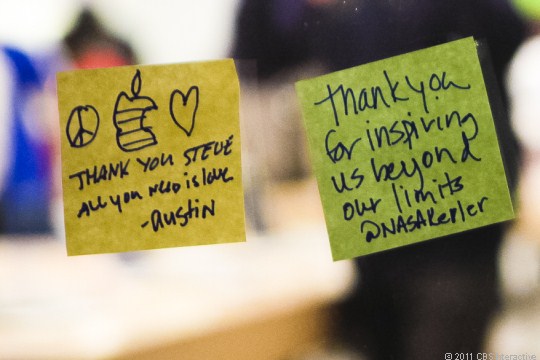 THANK YOU STEVE
ALL YOU NEED IS LOVE
- AUSTIN
Thank you
for inspiring
us beyond
our limits
@NASAKepler
© 2011 CBS Interactive